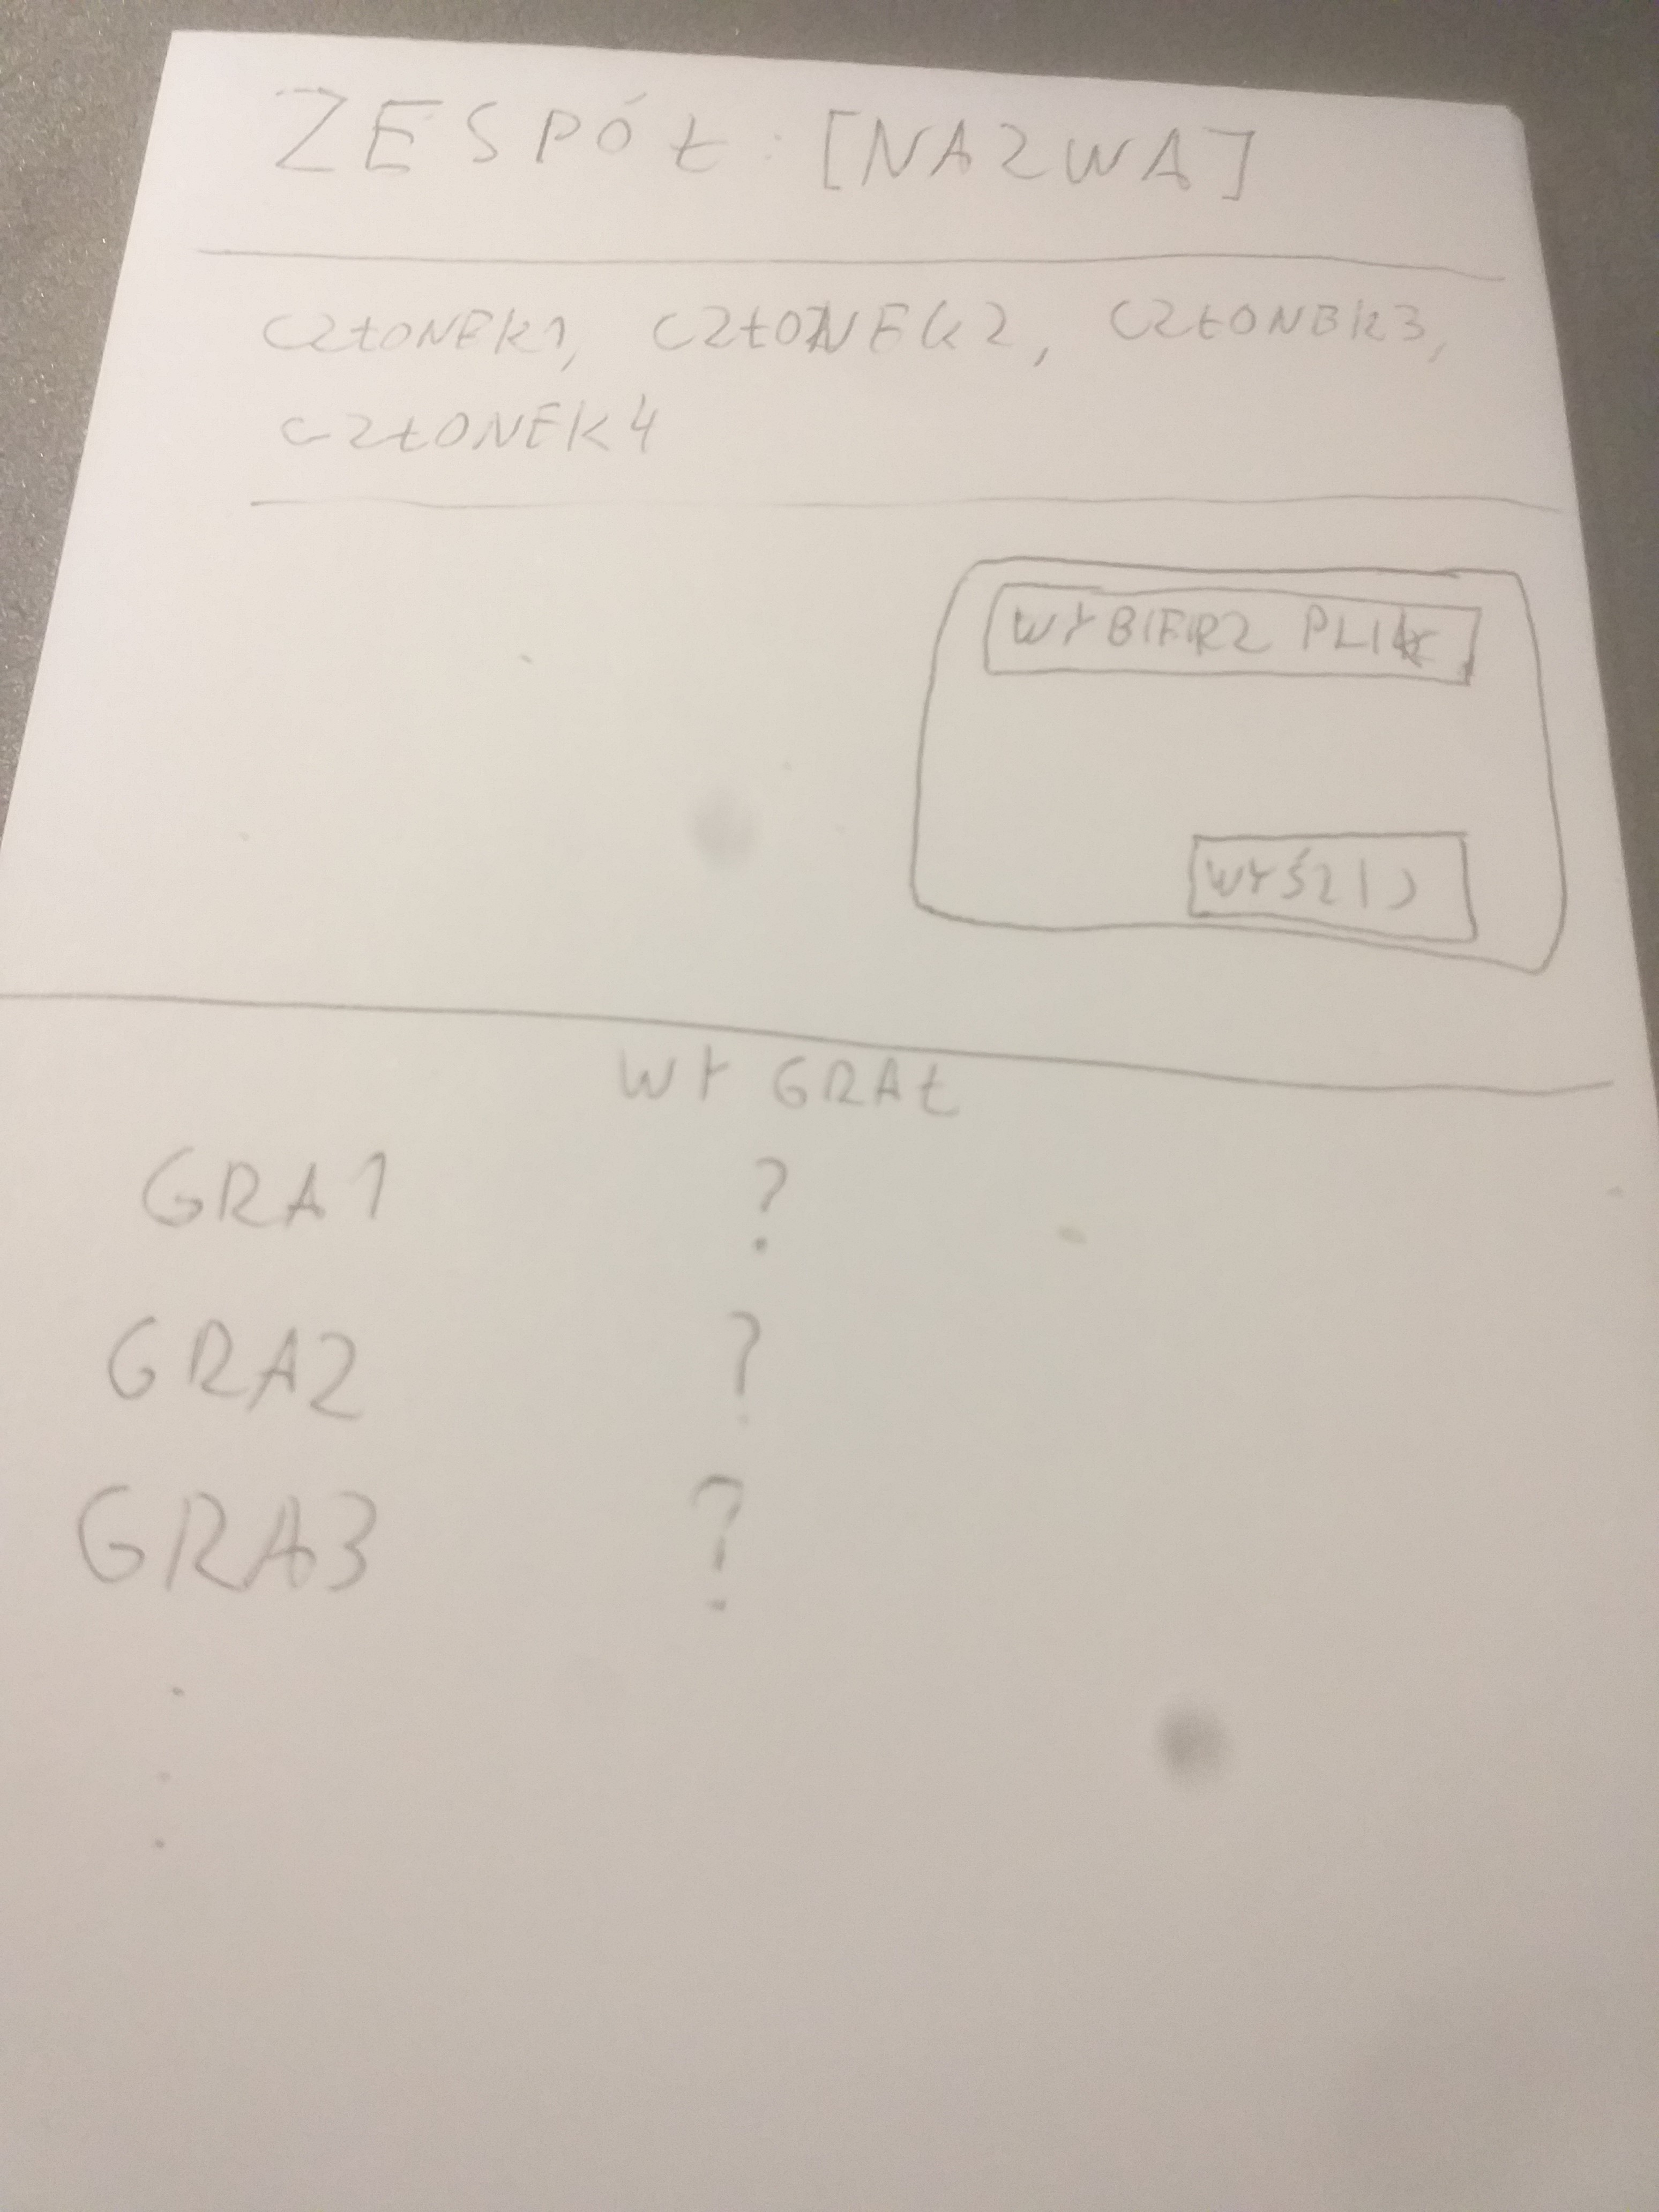 ZESPÓŁ: [NAZWA]
CZŁONEK1, CZŁONEK2, CZŁONEK3,
CZŁONEK4
WYBIERZ PLIK
WYŚLIJ
WYGRAŁ
GRA1 ?
GRA2 ?
GRA3 ?
.
.
.